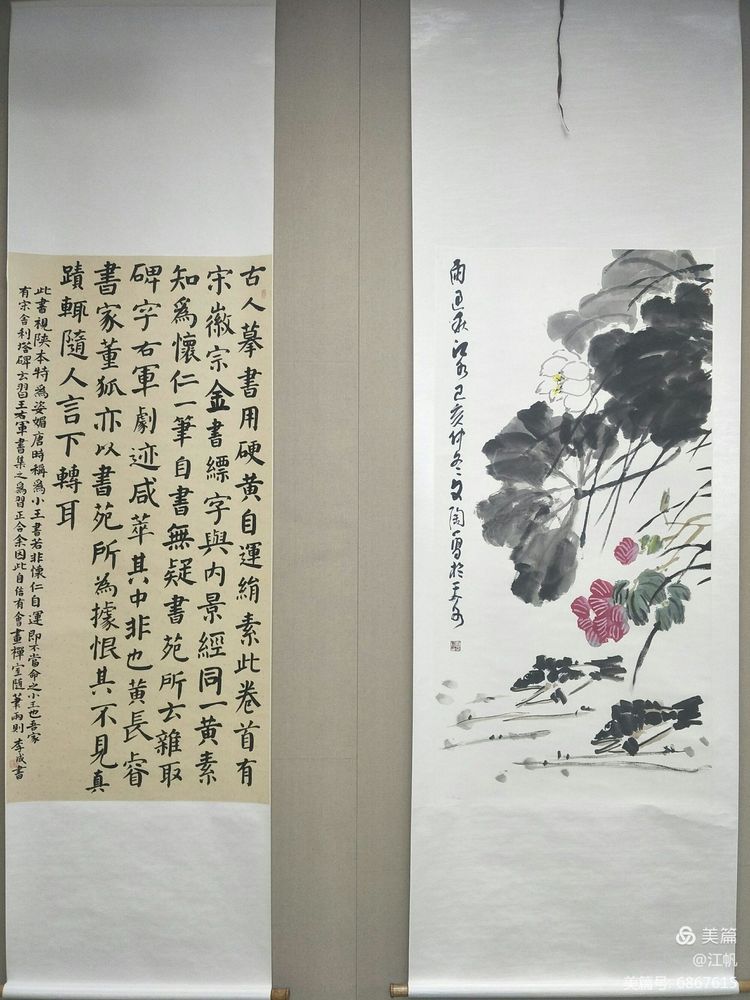 古人摹書用硬黄自運絹素此卷首有
宋徽宗金書縹字與內景經同一黄素
知爲懷仁一筆自書無疑書苑所云雜取
碑字右軍劇迹咸萃其中非也黄長睿
書家董狐亦以書苑所為據恨其不見真
蹟輒隨人言下轉耳
此書視陝本特爲姿媚唐時稱爲小王書若非懷仁自運即不當命之小王也吾家
有宋舍利塔碑云習王右軍書集之爲習正合余因此自信有會畫禪室隨筆兩則 李成書
雨过秋江 己亥仲冬文陶寫於
美篇
@江帆
美篇号: 6867615